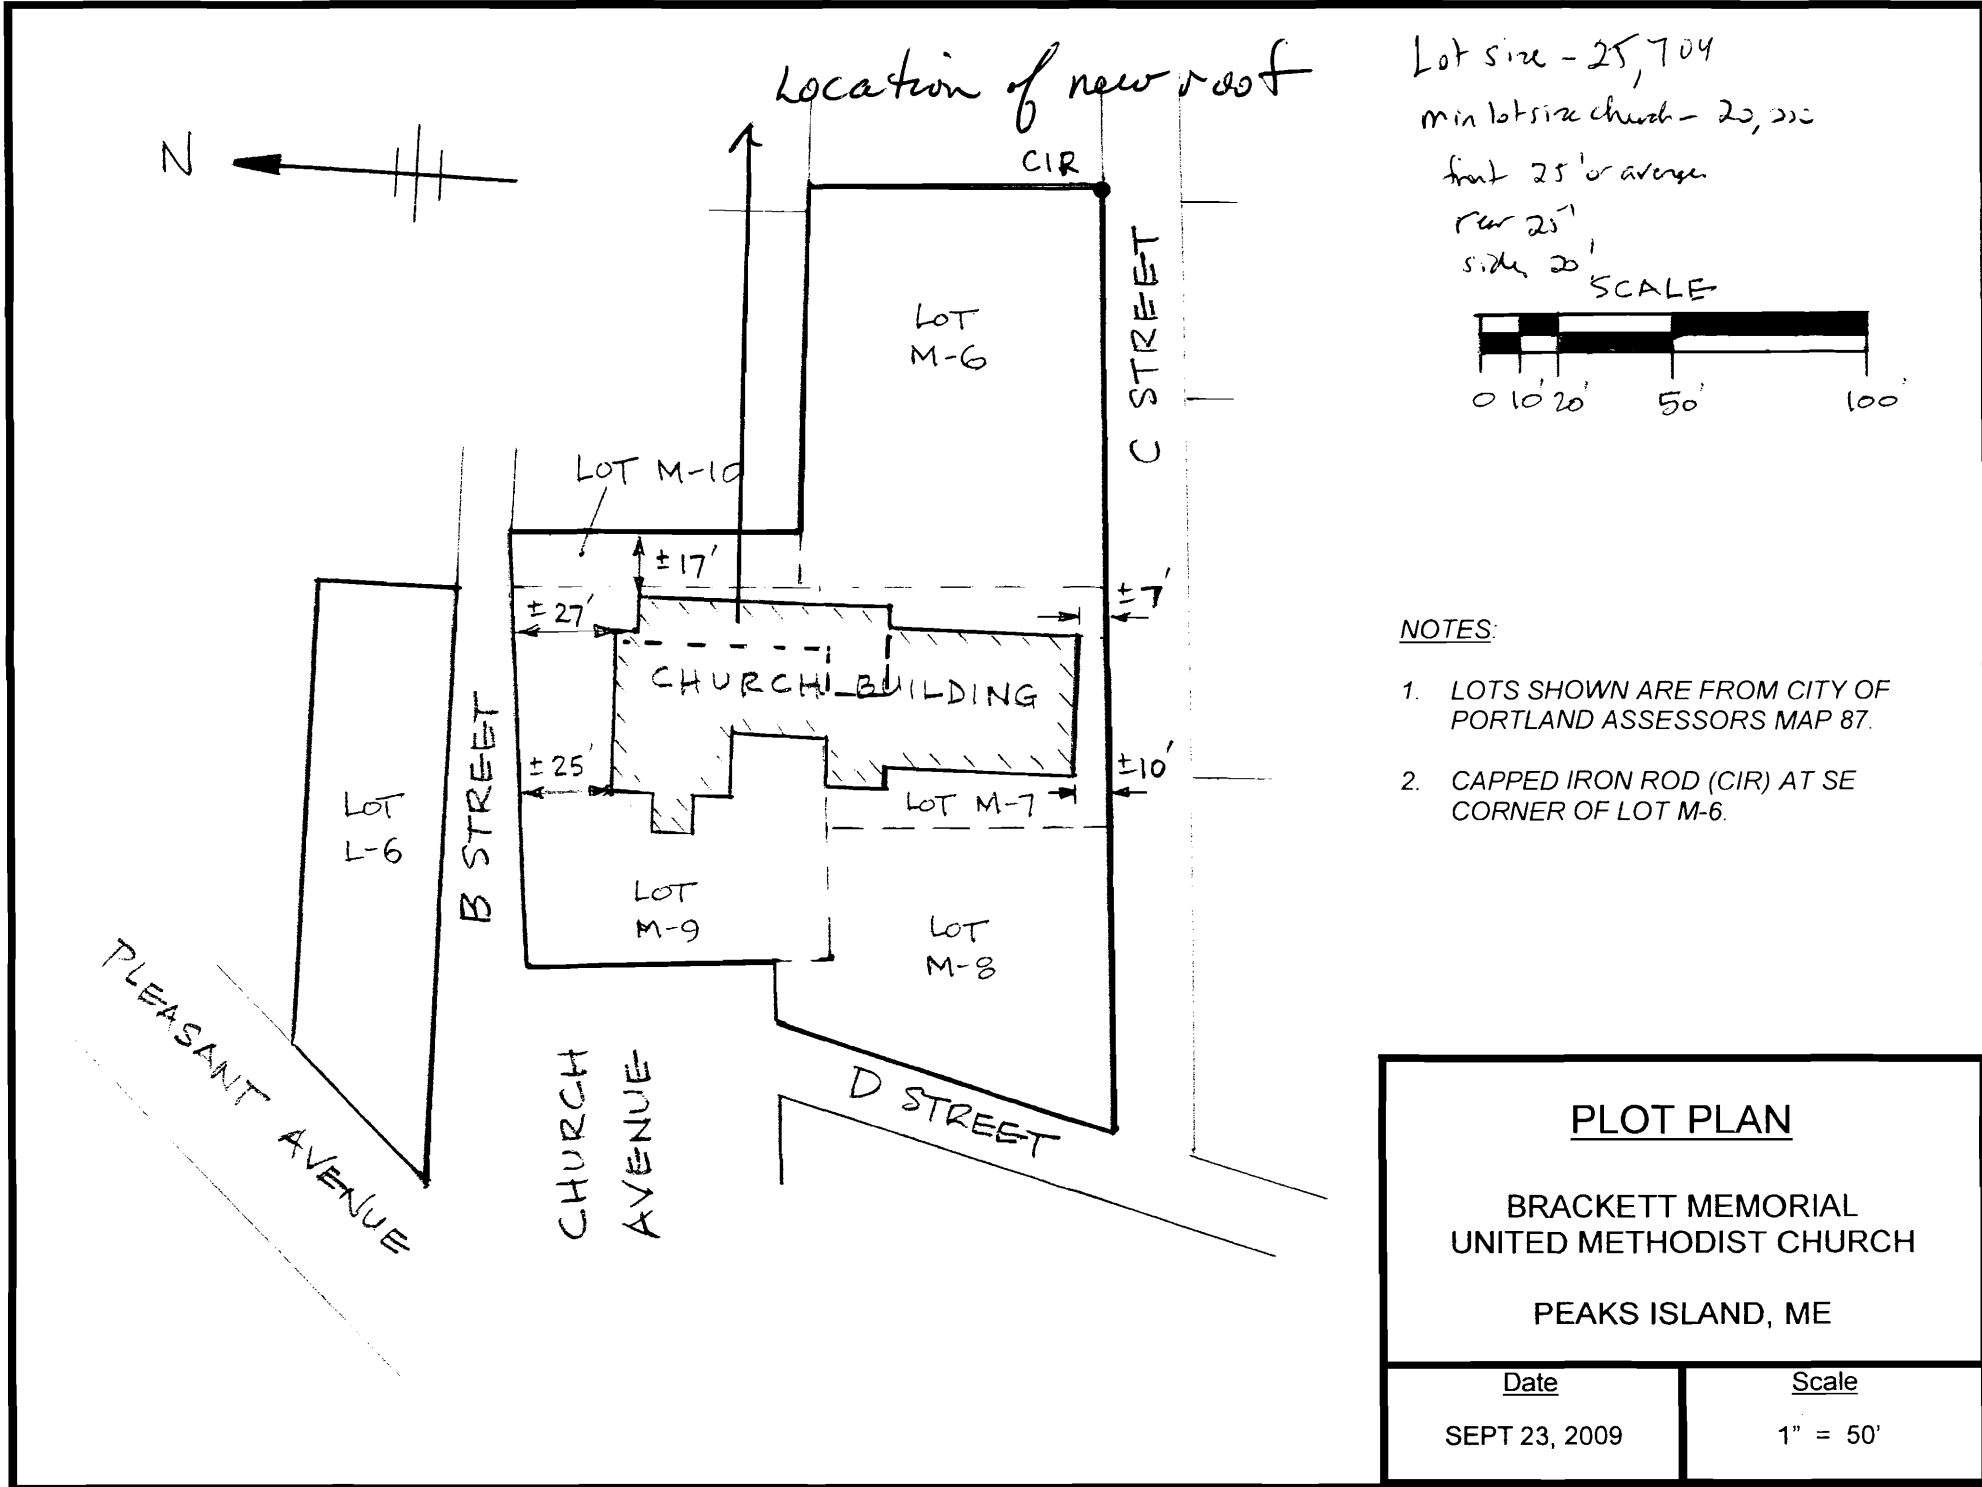 Location of new roof
Lot size - 25,704
min lot size church - 20,000
front 25' or average
rear 25'
side 20'
N
CIR
SCALE
0 10' 20' 50' 100'
LOT
M-6
C STREET
LOT M-10
±17'
±27'
±7'
CHURCH BUILDING
±25'
±10'
LOT M-7
B STREET
LOT
L-6
LOT
M-9
LOT
M-8
PLEASANT AVENUE
CHURCH
AVENUE
D STREET
NOTES:
1. LOTS SHOWN ARE FROM CITY OF
PORTLAND ASSESSORS MAP 87.
2. CAPPED IRON ROD (CIR) AT SE
CORNER OF LOT M-6.
PLOT PLAN
BRACKETT MEMORIAL
UNITED METHODIST CHURCH
PEAKS ISLAND, ME
Date
SEPT 23, 2009
Scale
1" = 50'